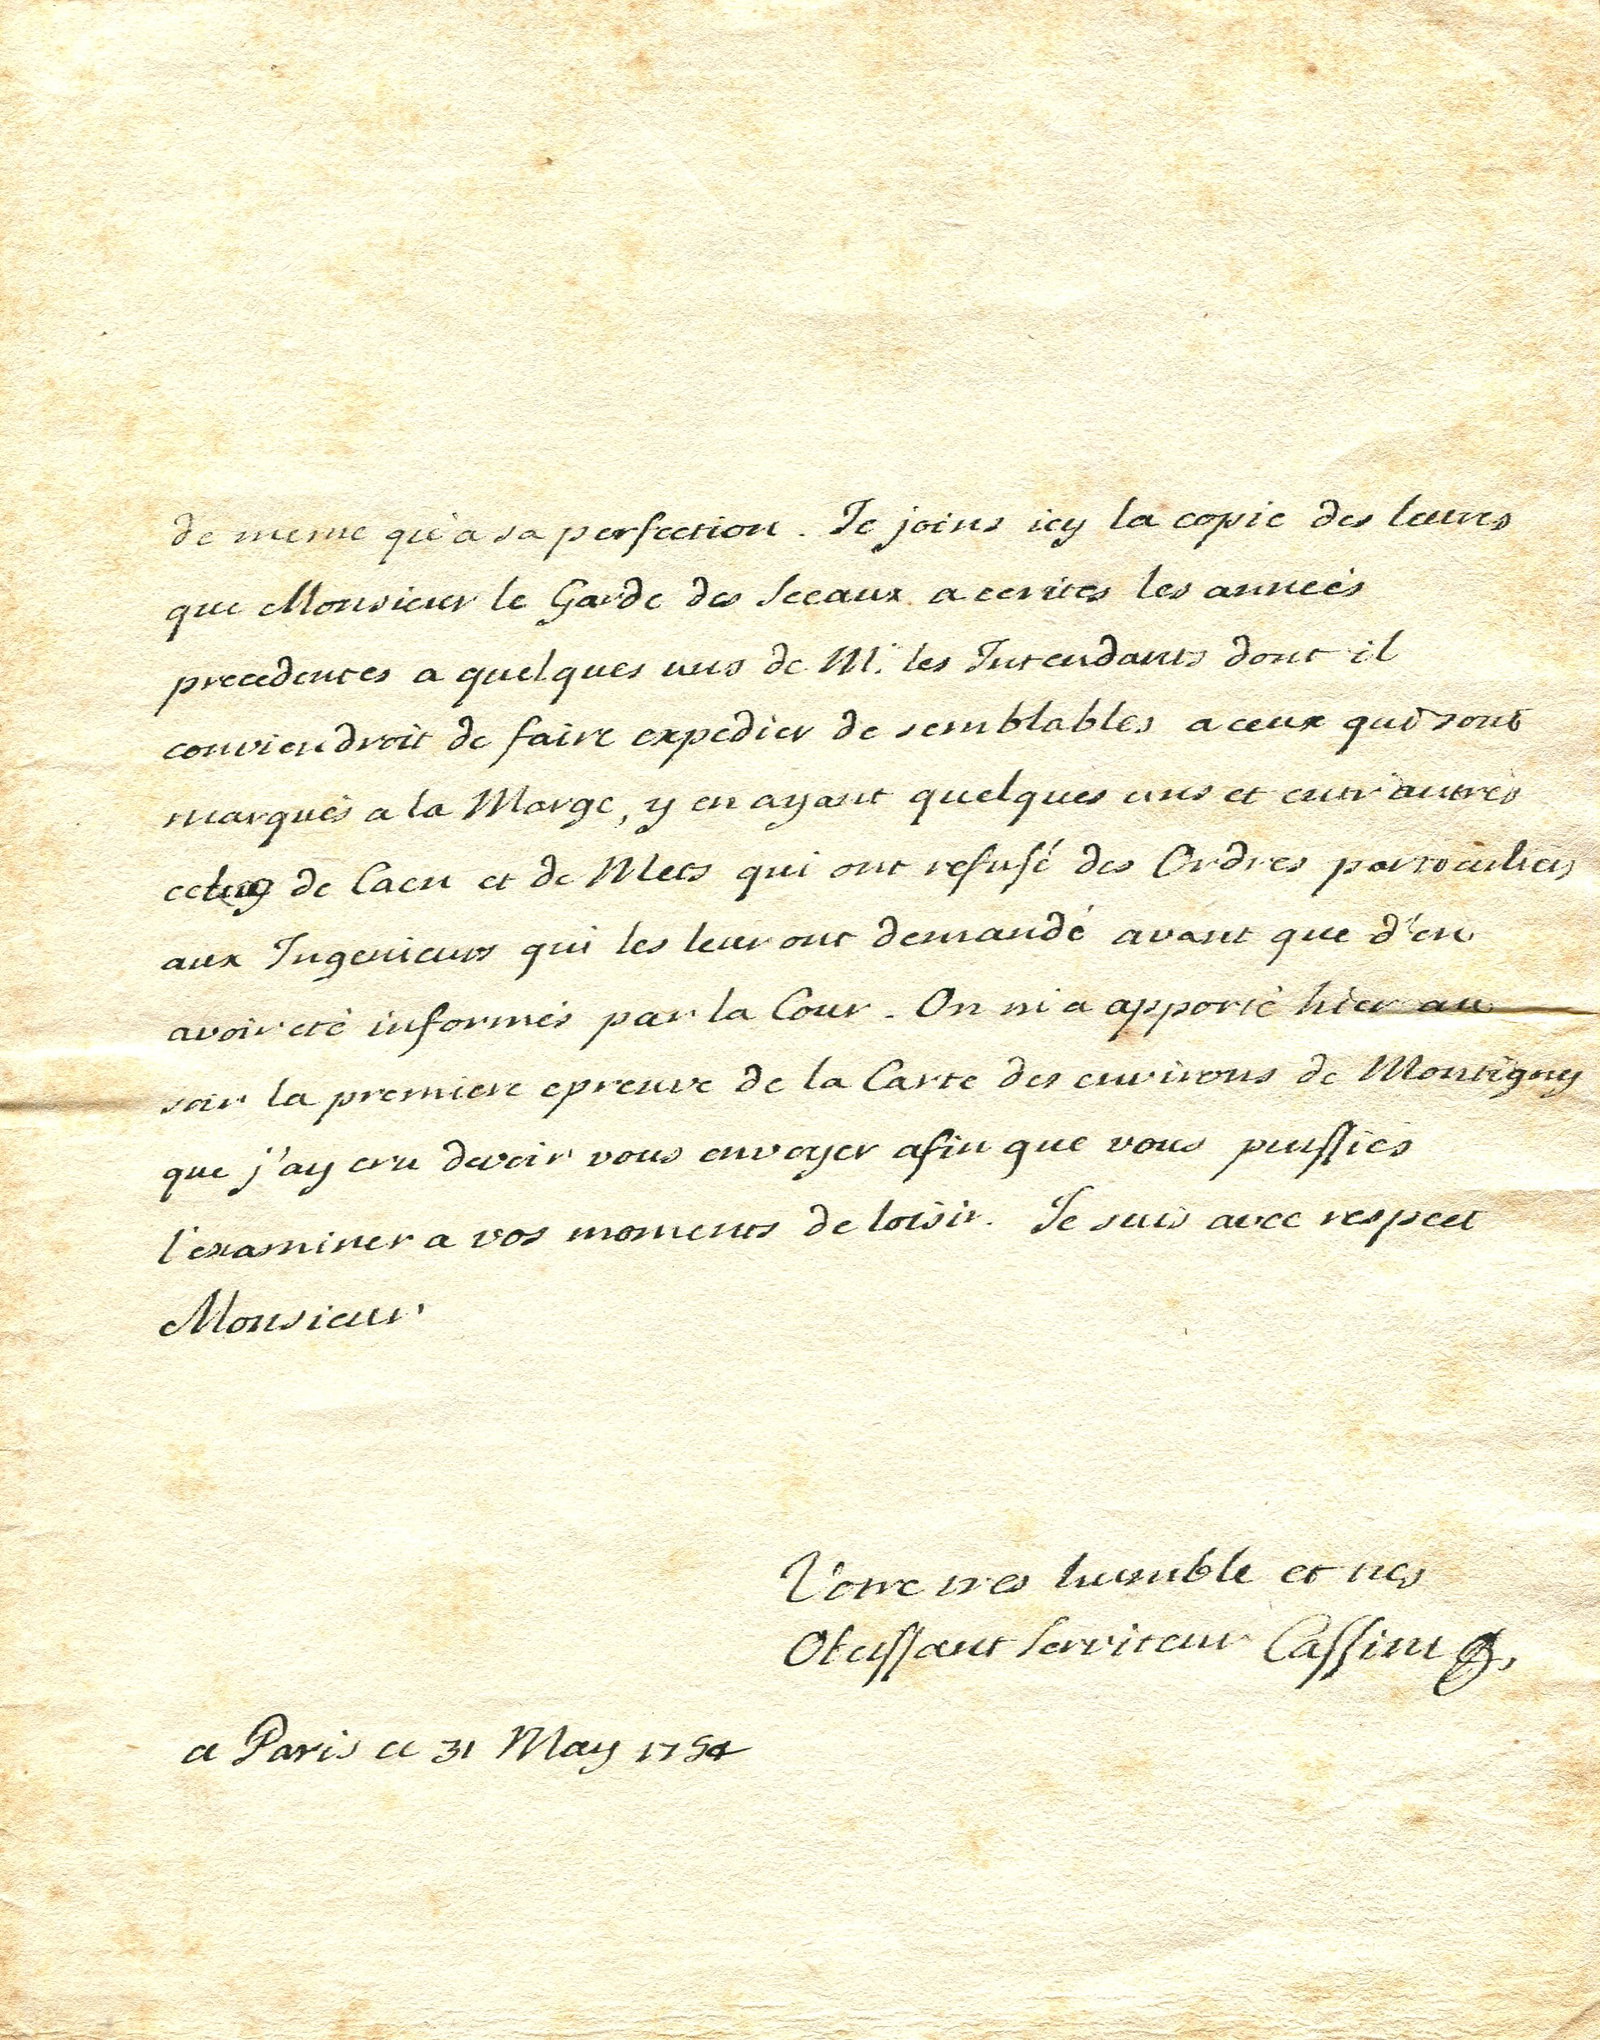 de meme qu'a sa perfection. Je joins icy la copie des lettres
que Monsieur le Garde des Sceaux a ecrites les années
precedentes a quelques uns de Mrs. les Intendants dont il
conviendroit de faire expedier de semblables a ceux qui sont
marqués a la Marge, y en ayant quelques uns et entr'autres
celuy de Caen et de Mets qui ont refusé des Ordres particuliers
aux Ingenieurs qui les leur ont demandé avant que d'en
avoir eté informés par la Cour. On m'a apporté hier au
soir la premiere epreuve de la Carte des environs de Montigny
que j'ay cru devoir vous envoyer afin que vous puissiés
l'examiner a vos moments de loisir. Je suis avec respect
Monsieur
Votre tres humble et tres
Obeissant Serviteur Cassini
a Paris ce 31 May 1754